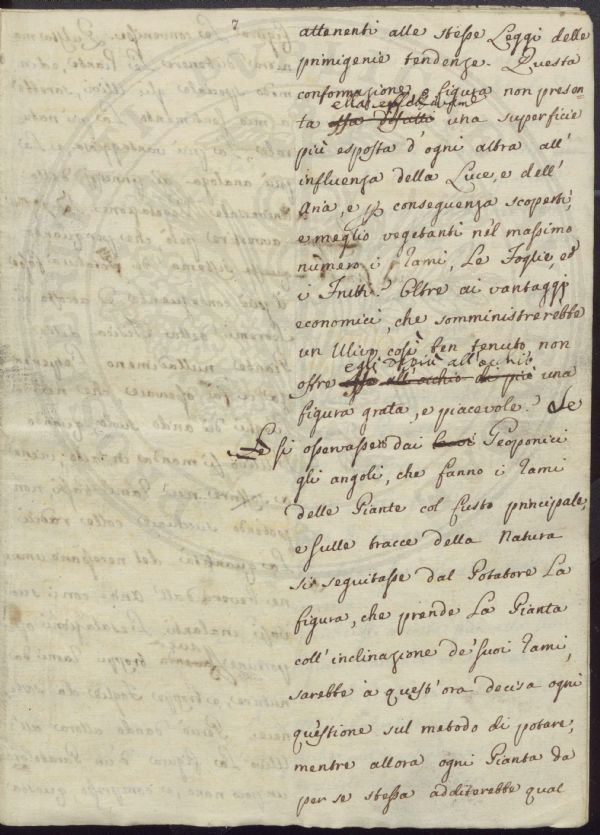 7
attenenti alle stesse Leggi delle
primigenie tendenze. Questa
conformazione, e figura non presen-
ella
ta essa difatti una superficie
più esposta d'ogni altra all'
influenza della Luce, e dell'
Aria, e p conseguenza scoperti,
e meglio vegetanti nel massimo
numero i Rami, Le Foglie, ed
i Frutti? Oltre ai vantaggi
economici, che somministrerebbe
un Ulivo così ben tenuto, non
egli di più all'occhio
offre esso all'occhio di più una
figura grata, e piacevole? Se
Se si osservasse dai Geoponici
gli angoli, che fanno i Rami
delle Piante col fusto principale,
e sulle tracce della Natura
si seguitasse dal Potatore La
figura, che prende La Pianta
coll'inclinazione de' suoi Rami,
sarebbe a quest'ora decisa ogni
questione sul metodo di potare,
mentre allora ogni Pianta da
per se stessa additerebbe qual